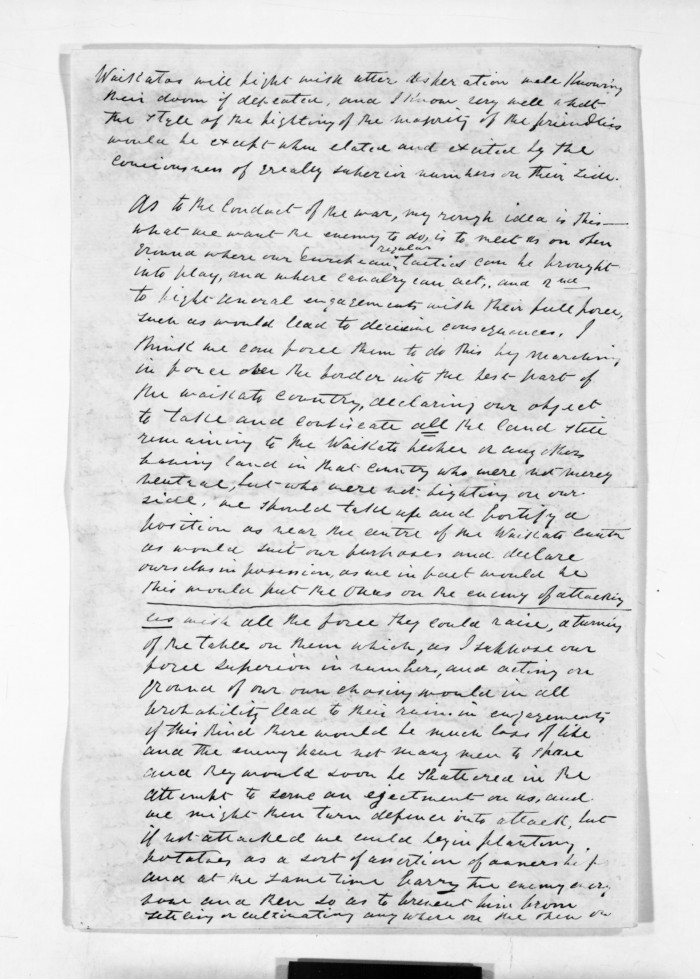 Waikatos will fight with utter desperation well Knowing
their doom if defeated, and I Know very well what
the style of the fighting of the majority of the friendlies
would be except when elated and excited by the
conciousness of greatly superior numbers on their side.
As to the Conduct of the war, my rough idea is this—
what we want the enemy to do, is to meet us on open
regular
Ground where our European tactics can be brought
into play, and where cavalry can act, and 2nd
to fight General engagements with their full force,
such as would lead to decisive consequences. I
think we can force them to do this by marching
in force over the border into the best part of
the Waikato Country, declaring our object
to take and confiscate all the land still
remaining to the Waikato hecher or any others
having land in that Country who were not merely
neutral, but who were not fighting on our
side. we should take up and fortify a
position as near the centre of the Waikato Country
as would suit our purposes and declare
ourselves in posession, as we in fact would be
this would put the Onus on the enemy of attacking
us with all the force they could raise, a turning
of the tables on them which, as I suppose our
force superior in numbers, and acting on
ground of our own chosing would in all
probability lead to their ruin in engagements
of this Kind there would be much loss of life
and the enemy have not many men to spare
and they would soon be shattered in the
attempt to serve an ejectment on us, and
we might then turn defence into attack, but
if not attacked we could begin planting
potatoes as a sort of assertion of ownership
and at the same time harry the enemy every
now and then so as to prevent him from
settling or cultivating any where on the open or